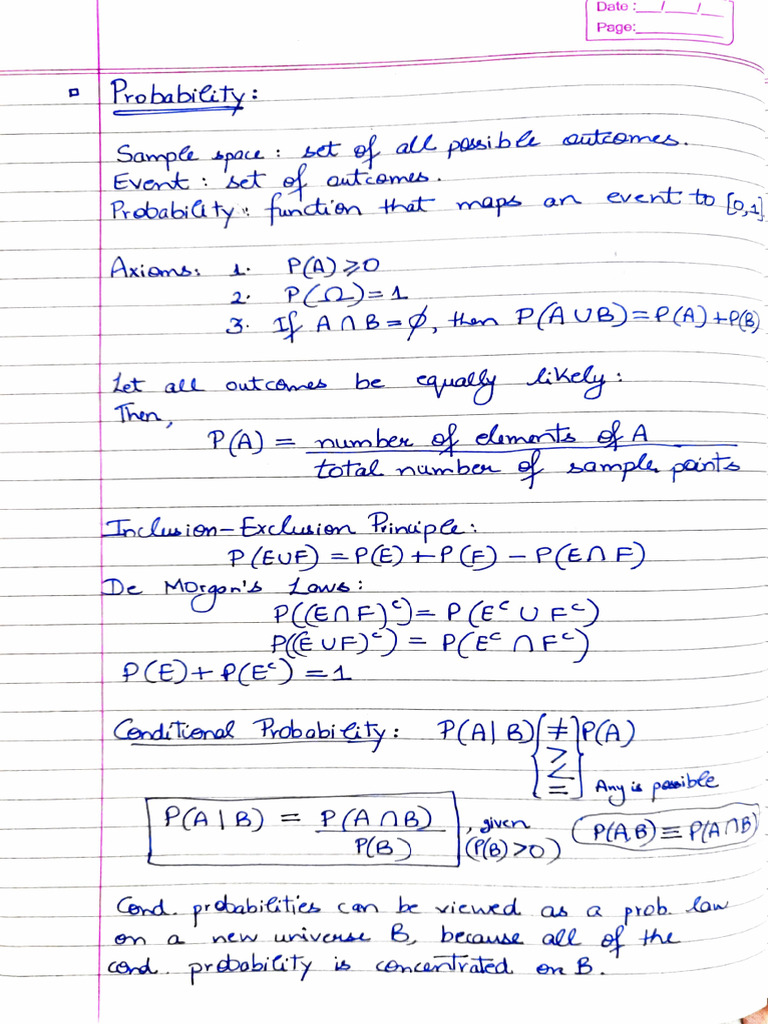 Date :__/__/__
Page:________
Probability:
Sample space: set of all possible outcomes.
Event: set of outcomes.
Probability: function that maps an event to [0,1]
Axioms: 1. P(A) ⩾ 0
2. P(Ω) = 1
3. If A ∩ B = ∅, then P(A ∪ B) = P(A) + P(B)
Let all outcomes be equally likely:
Then,
P(A) = number of elements of A
total number of sample points
Inclusion-Exclusion Principle:
P(E∪F) = P(E) + P(F) - P(E ∩ F)
De Morgan's Laws:
P((E ∩ F)ᶜ) = P(Eᶜ ∪ Fᶜ)
P((E ∪ F)ᶜ) = P(Eᶜ ∩ Fᶜ)
P(E) + P(Eᶜ) = 1
Conditional Probability: P(A|B) { ≠ } P(A)
>
<
= Any is possible
P(A|B) = P(A ∩ B) , given P(A,B) ≡ P(A∩B)
P(B) (P(B) > 0)
Cond. probabilities can be viewed as a prob. law
on a new universe B, because all of the
cond. probability is concentrated on B.